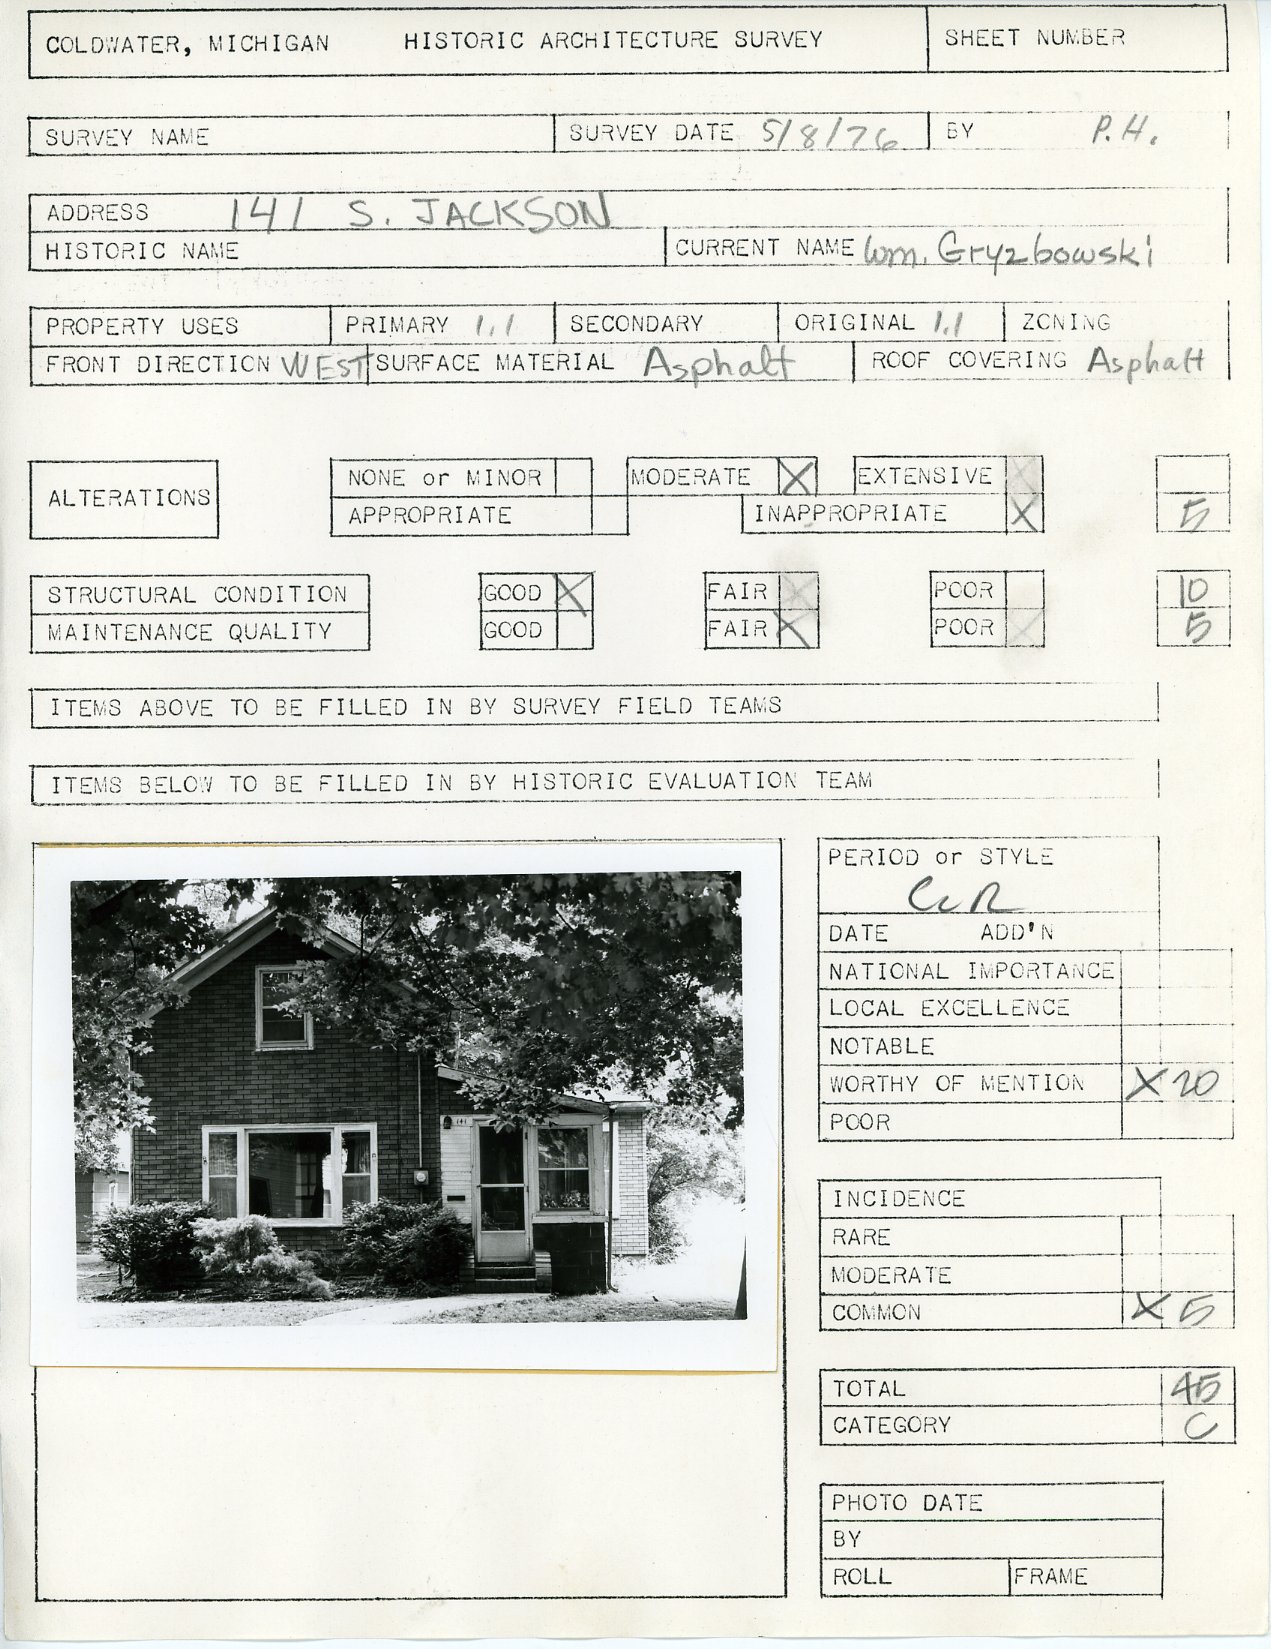 COLDWATER, MICHIGAN HISTORIC ARCHITECTURE SURVEY SHEET NUMBER
SURVEY NAME SURVEY DATE 5/8/76 BY P.H.
ADDRESS 141 S. JACKSON
HISTORIC NAME CURRENT NAME Wm. Gryzbowski
PROPERTY USES PRIMARY 1.1 SECONDARY ORIGINAL 1.1 ZONING
FRONT DIRECTION WEST SURFACE MATERIAL Asphalt ROOF COVERING Asphalt
ALTERATIONS NONE or MINOR MODERATE X EXTENSIVE X
APPROPRIATE INAPPROPRIATE X 5
STRUCTURAL CONDITION GOOD X FAIR X POOR 10
MAINTENANCE QUALITY GOOD FAIR X POOR X 5
ITEMS ABOVE TO BE FILLED IN BY SURVEY FIELD TEAMS
ITEMS BELOW TO BE FILLED IN BY HISTORIC EVALUATION TEAM
PERIOD or STYLE
DATE ADD'N
NATIONAL IMPORTANCE
LOCAL EXCELLENCE
NOTABLE
WORTHY OF MENTION X 20
POOR
141
INCIDENCE
RARE
MODERATE
COMMON X 5
TOTAL 45
CATEGORY C
PHOTO DATE
BY
ROLL FRAME